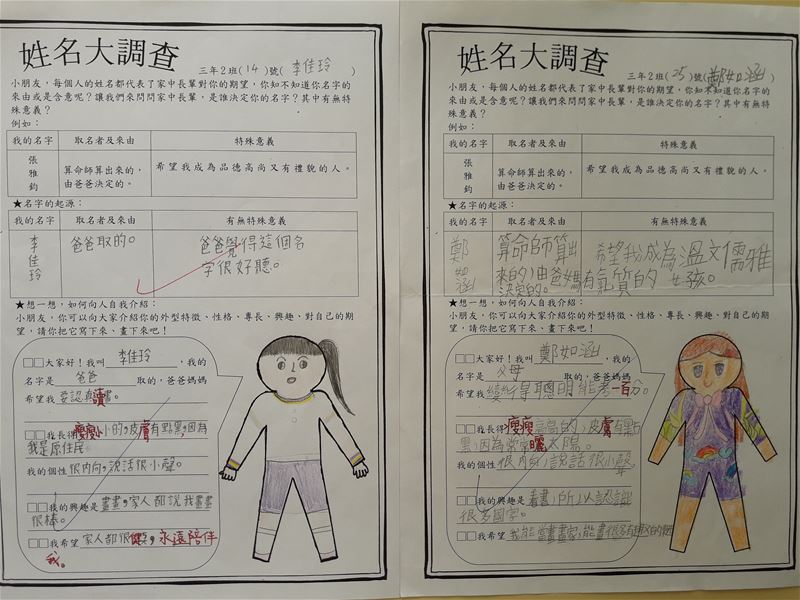 姓名大調查
三年2班(14)號(李佳玲)
小朋友,每個人的姓名都代表了家中長輩對你的期望,你知不知道你名字的
來由或是含意呢?讓我們來問問家中長輩,是誰決定你的名字?其中有無特
殊意義?
例如:
我的名字 取名者及來由 特殊意義
張雅鈞 算命師算出來的, 希望我成為品德高尚又有禮貌的人。
由爸爸決定的。
★名字的起源:
我的名字 取名者及來由 有無特殊意義
李佳玲 爸爸取的。 爸爸覺得這個名
字很好聽。
★想一想,如何向人自我介紹:
小朋友,你可以向大家介紹你的外型特徵、性格、專長、興趣、對自己的期
望,請你把它寫下來、畫下來吧!
□□大家好!我叫李佳玲,我的
名字是爸爸取的,爸爸媽媽
希望我要認真讀書。
□□我長得瘦瘦小小的,皮膚有點黑,因為
我是原住民。
我的個性很內向,說話很小聲。
□□我的興趣是畫畫,家人都說我畫畫
很棒。
□□我希望家人都很健康,永遠陪伴
我。
姓名大調查
三年2班(25)號(鄭如涵)
小朋友,每個人的姓名都代表了家中長輩對你的期望,你知不知道你名字的
來由或是含意呢?讓我們來問問家中長輩,是誰決定你的名字?其中有無特
殊意義?
例如:
我的名字 取名者及來由 特殊意義
張雅鈞 算命師算出來的, 希望我成為品德高尚又有禮貌的人。
由爸爸決定的。
★名字的起源:
我的名字 取名者及來由 有無特殊意義
鄭如涵 算命師算出來的,由爸媽決定的。 希望我成為溫文儒雅
有氣質的女孩。
★想一想,如何向人自我介紹:
小朋友,你可以向大家介紹你的外型特徵、性格、專長、興趣、對自己的期
望,請你把它寫下來、畫下來吧!
□□大家好!我叫鄭如涵,我的
名字是父母取的,爸爸媽媽
希望我變得聰明能考一百分。
□□我長得瘦瘦高高的,皮膚有點
黑,因為常常曬太陽。
我的個性很內向,說話很小聲
□□我的興趣是看書,所以認識
很多國字。
□□我希望我能當畫畫家,能畫很多有